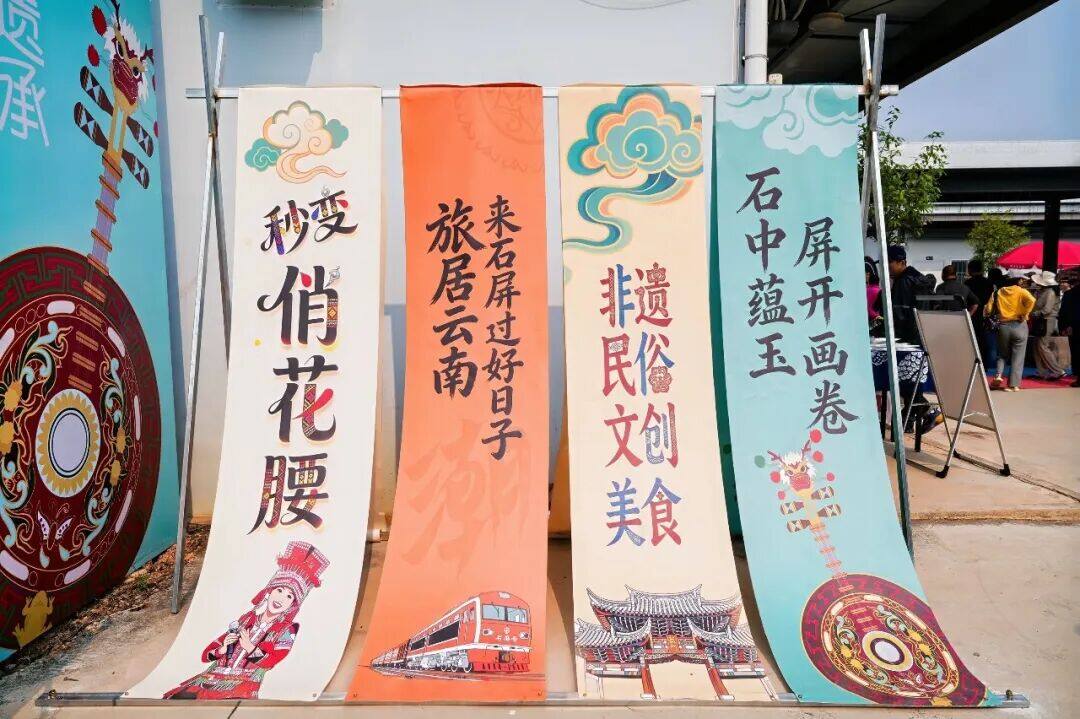 承
秒变
俏花腰
旅居云南
来石屏过好日子
非遗
民俗
文创
美食
石中蕴玉
屏开画卷